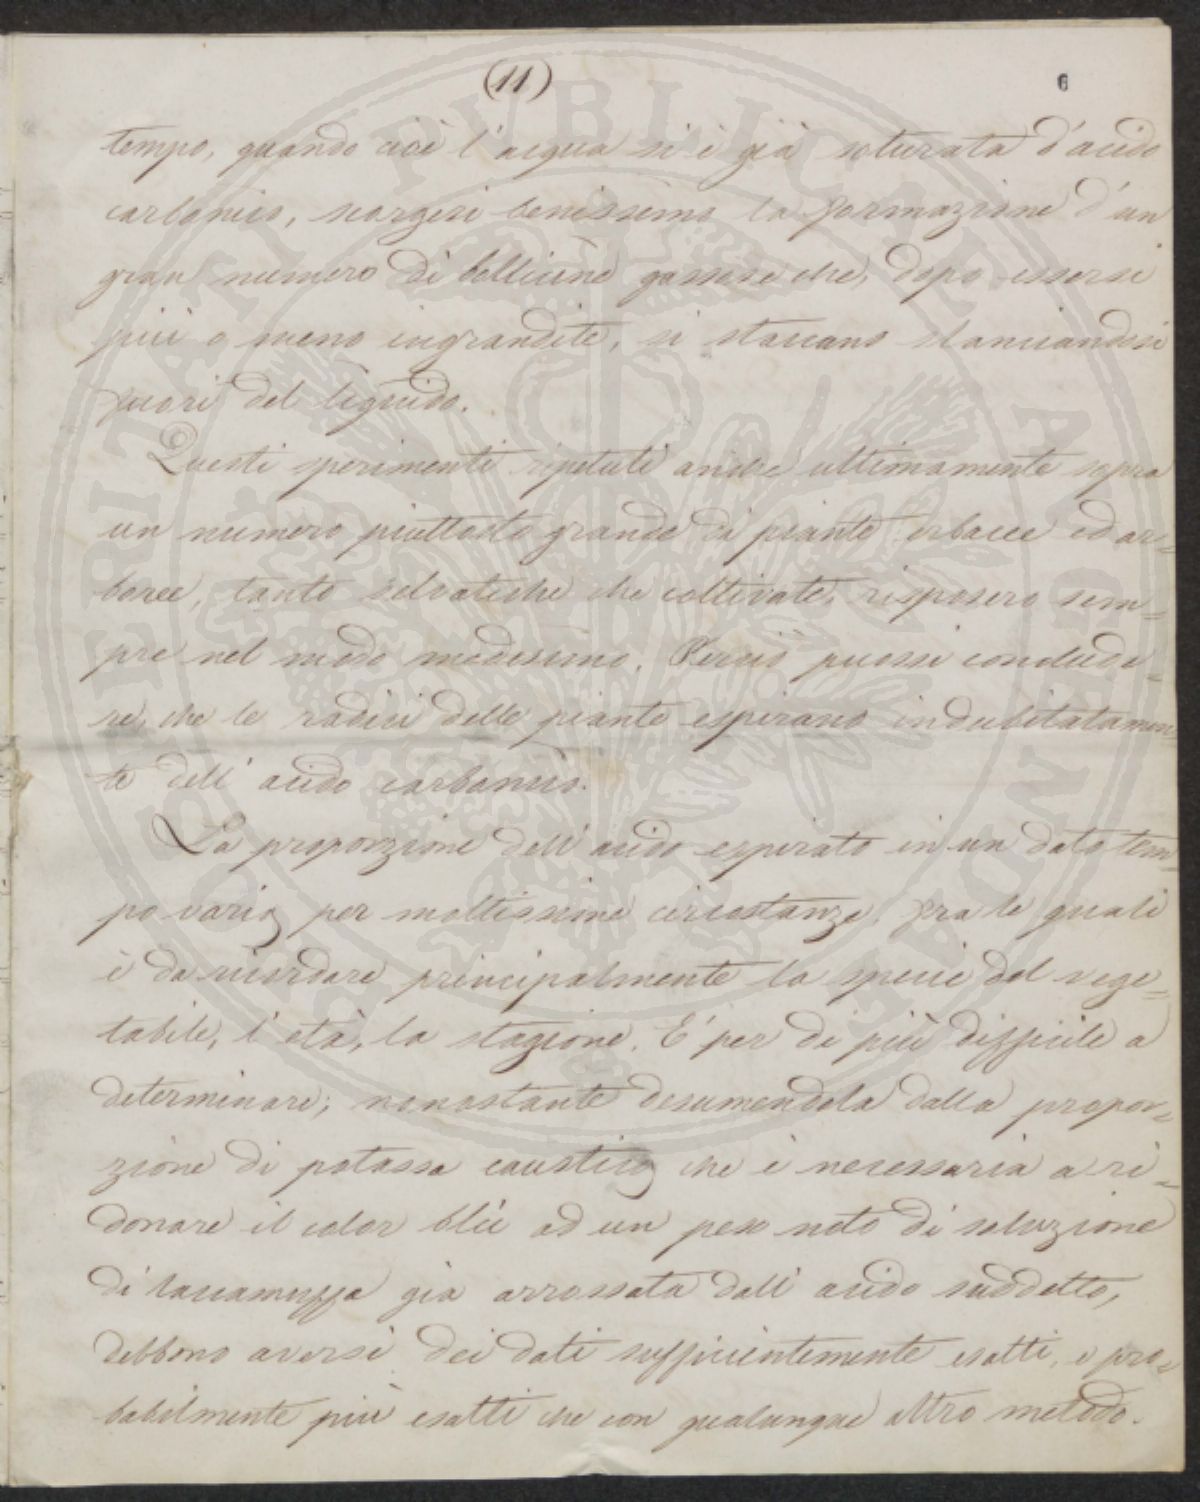 (11)
6
tempo, quando cioè l'acqua si è già saturata d'acido
carbonico, scorgesi benissimo la formazione d'un
gran numero di bollicine gassose che, dopo essersi
più o meno ingrandite, si staccano slanciandosi
fuori del liquido.
Questi sperimenti ripetuti anche ultimamente sopra
un numero piuttosto grande di piante erbacee ed ar=
boree, tanto selvatiche che coltivate, risposero sem=
pre nel modo medesimo. Perciò puossi conclude=
re, che le radici delle piante espirano indubitatamen=
te dell'acido carbonico.
La proporzione dell'acido espirato in un dato tem=
po varia per moltissime circostanze, fra le quali
è da ricordare principalmente la specie del vege=
tabile, l'età, la stagione. E' per di più difficile a
determinare; nonostante desumendola dalla propor=
zione di potassa caustica che è necessaria a ri=
donare il color blù ad un peso noto di soluzione
di laccamuffa già arrossata dall'acido suddetto,
debbono aversi dei dati sufficientemente esatti, e pro=
babilmente più esatti che con qualunque altro metodo.